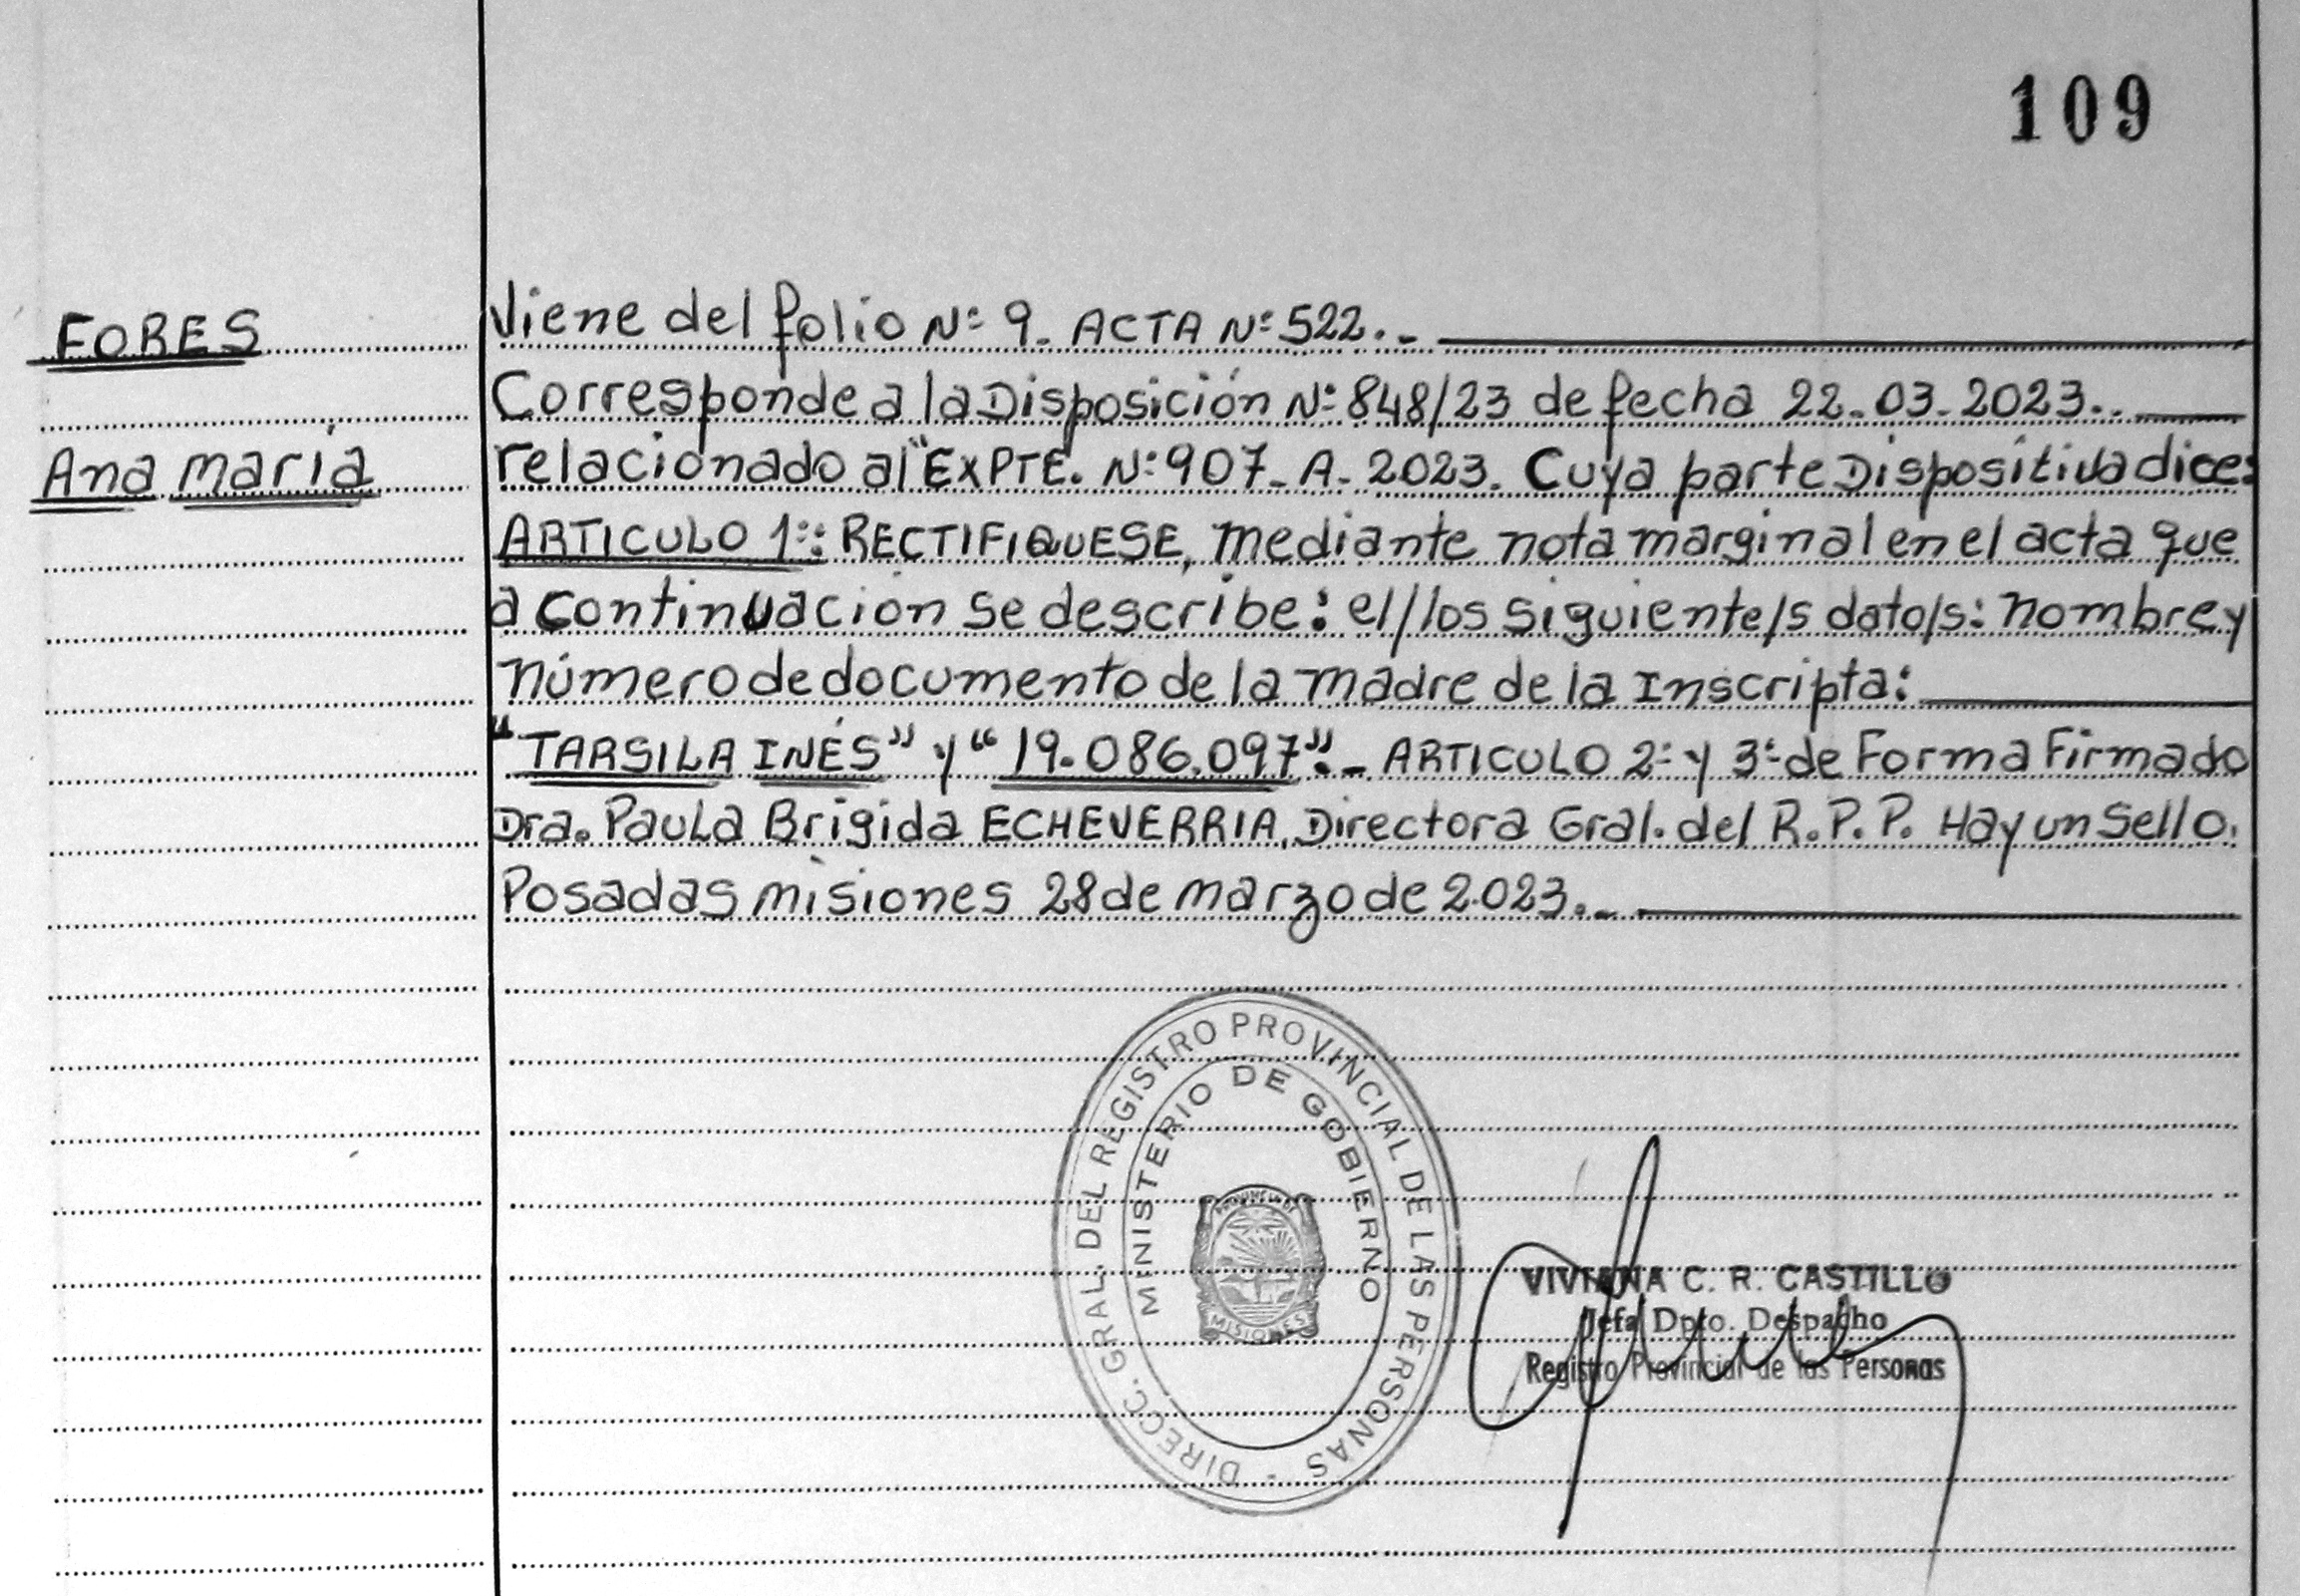 109
FORES
Ana maría
Viene del folio Nº 9. ACTA Nº 522._
Corresponde a la Disposición Nº 848/23 de fecha 22-03-2023._
relacionado al "EXPTE. Nº 907-A-2023. Cuya parte Dispositiva dice:
ARTICULO 1º: RECTIFIQUESE, mediante nota marginal en el acta que
a continuación se describe: el/los siguiente/s dato/s: nombre y
número de documento de la madre de la Inscripta:
"TARSILA INÉS" y "19.086.097"._ ARTICULO 2º y 3º de Forma Firmado
Dra. Paula Brigida ECHEVERRIA, Directora Gral. del R.P.P. Hay un Sello.
Posadas misiones 28 de marzo de 2023._
DIRECC. GRAL. DEL REGISTRO PROVINCIAL DE LAS PERSONAS -
MINISTERIO DE GOBIERNO
PROVINCIA DE
MISIONES
VIVIANA C. R. CASTILLO
Jefa Dpto. Despacho
Registro Provincial de las Personas